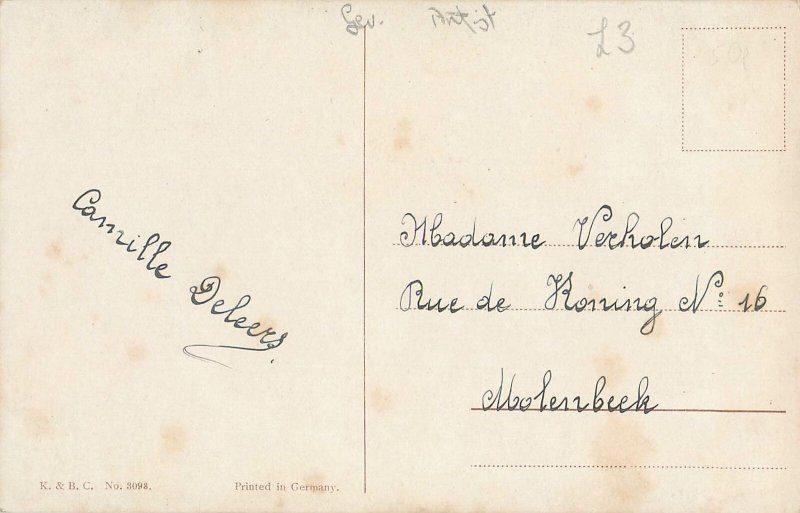 £3
Camille Deleers.
Madame Verholen
Rue de Koning N° 16
Molenbeek
K. & B. C. No. 3098.
Printed in Germany.